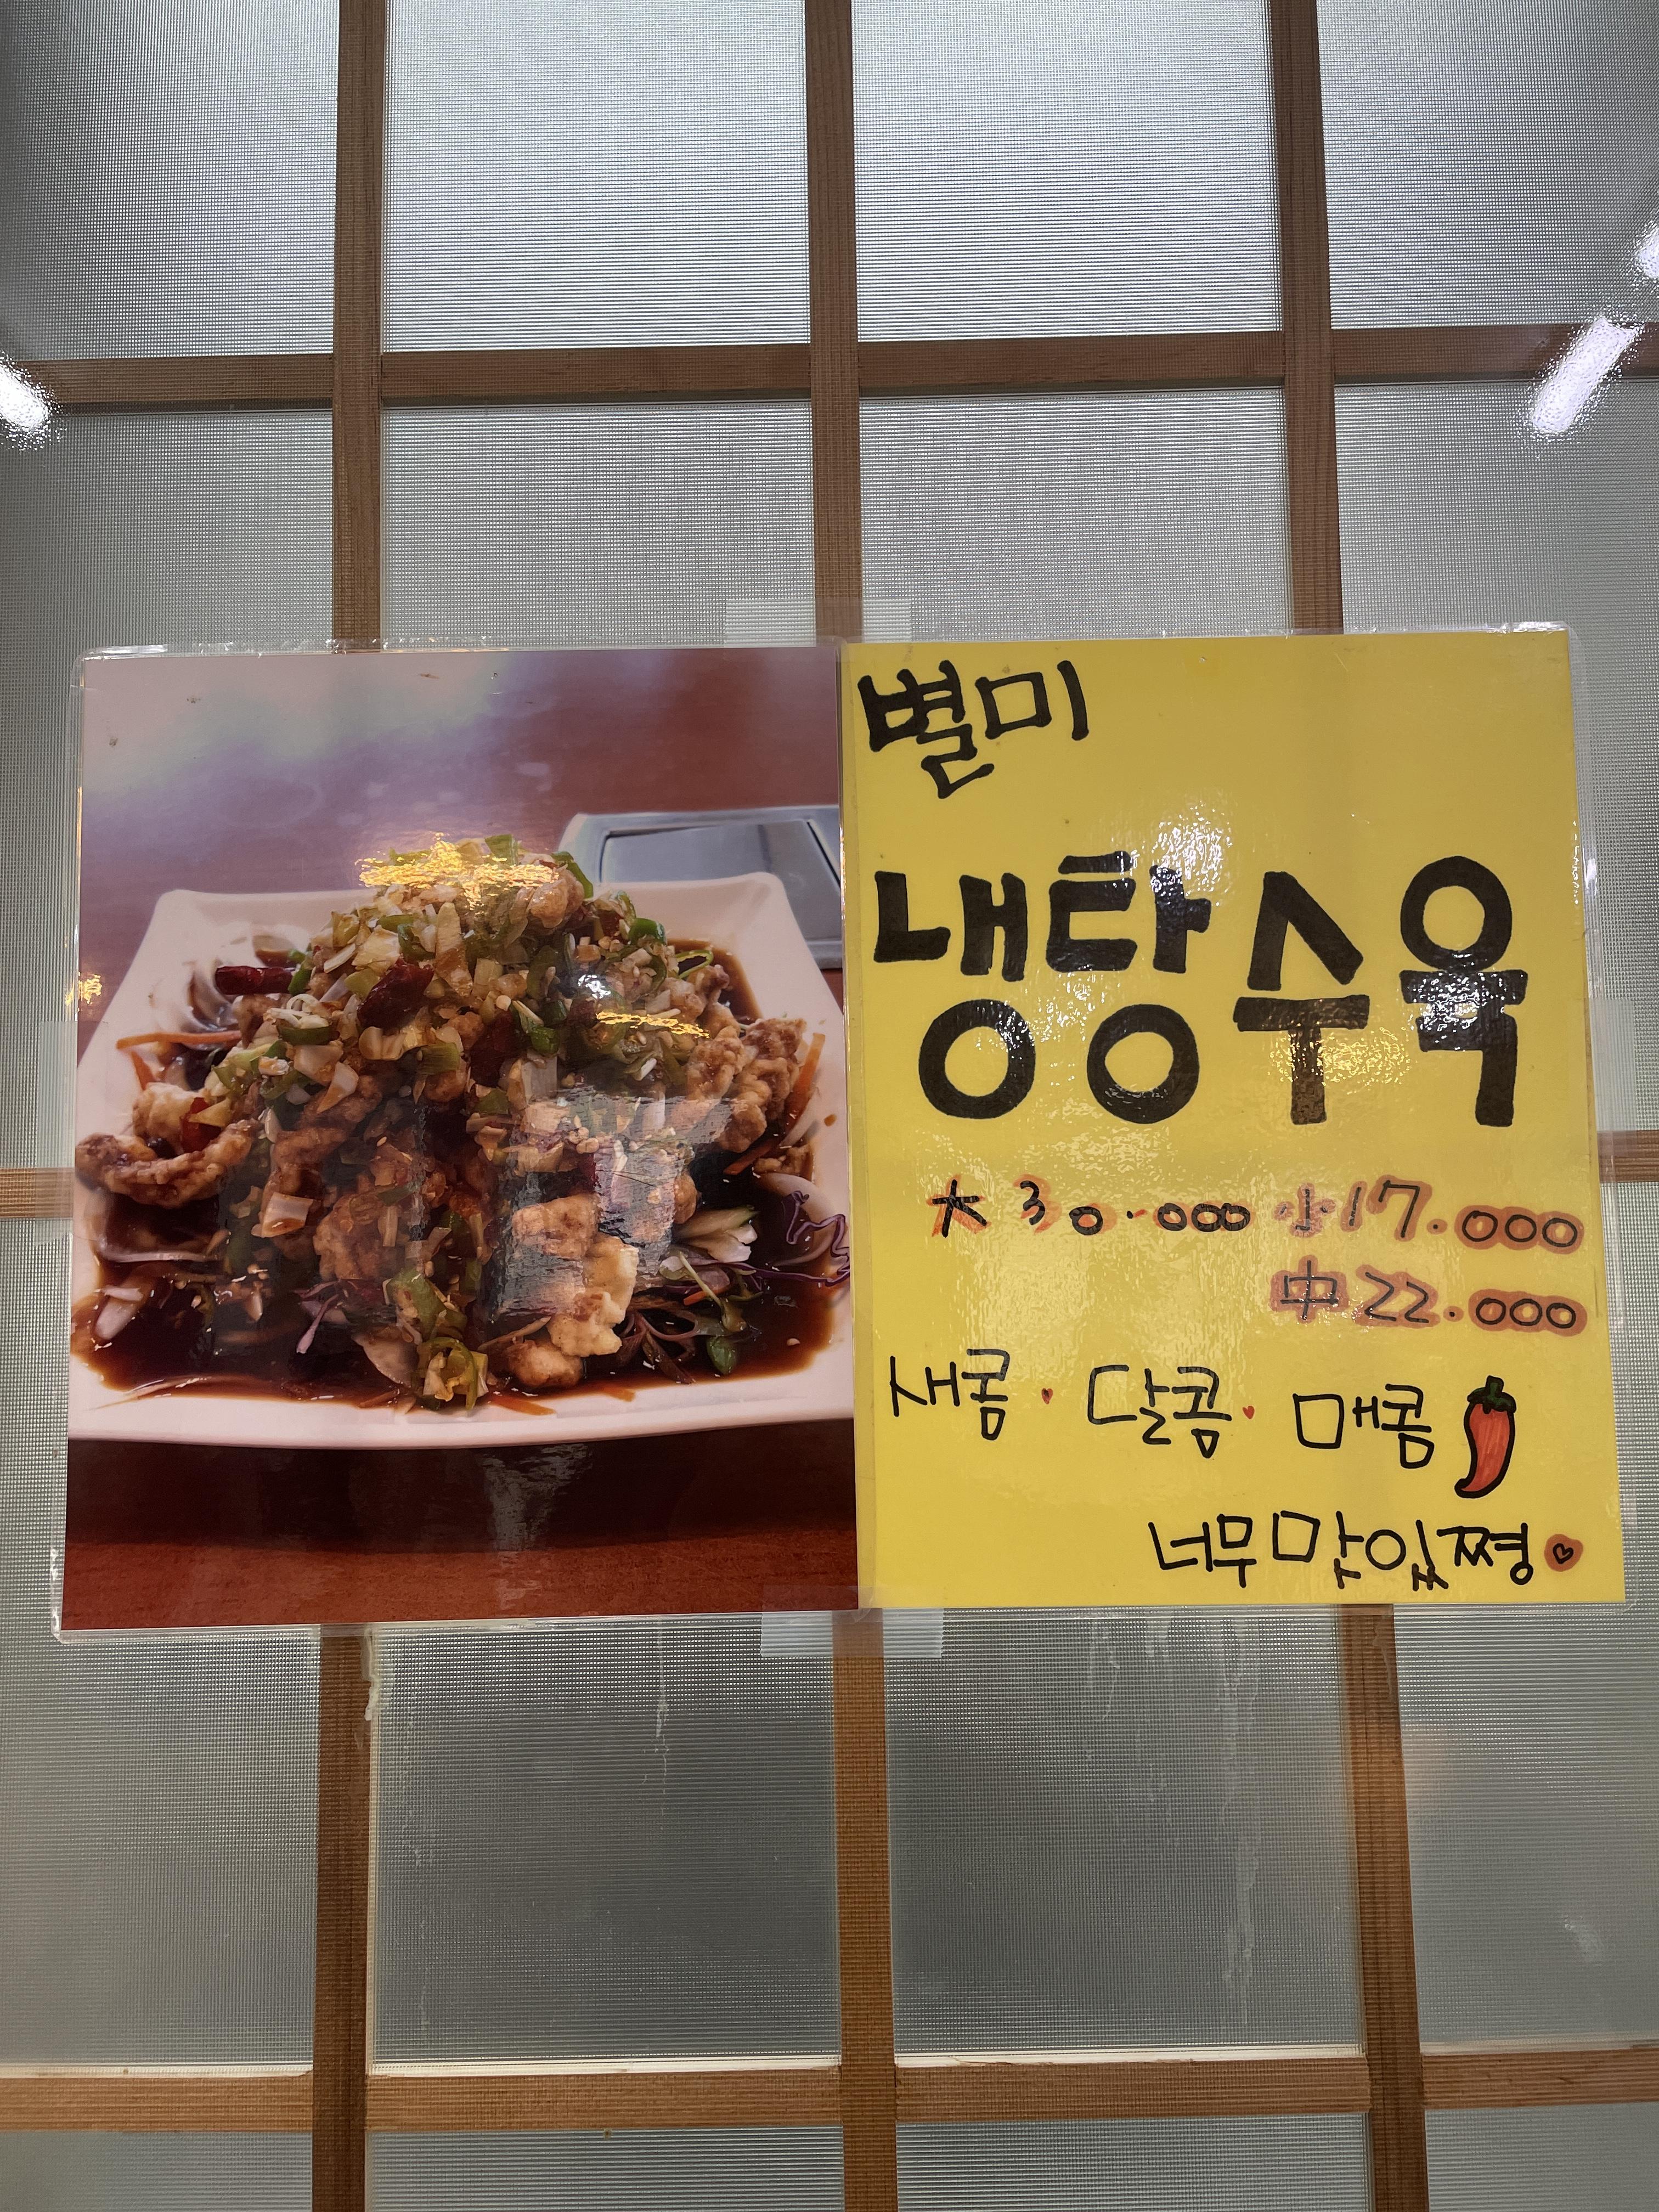 별미
냉탕수육
大 30.000 小 17.000
中 22.000
새콤. 달콤. 매콤
너무 맛있쪙